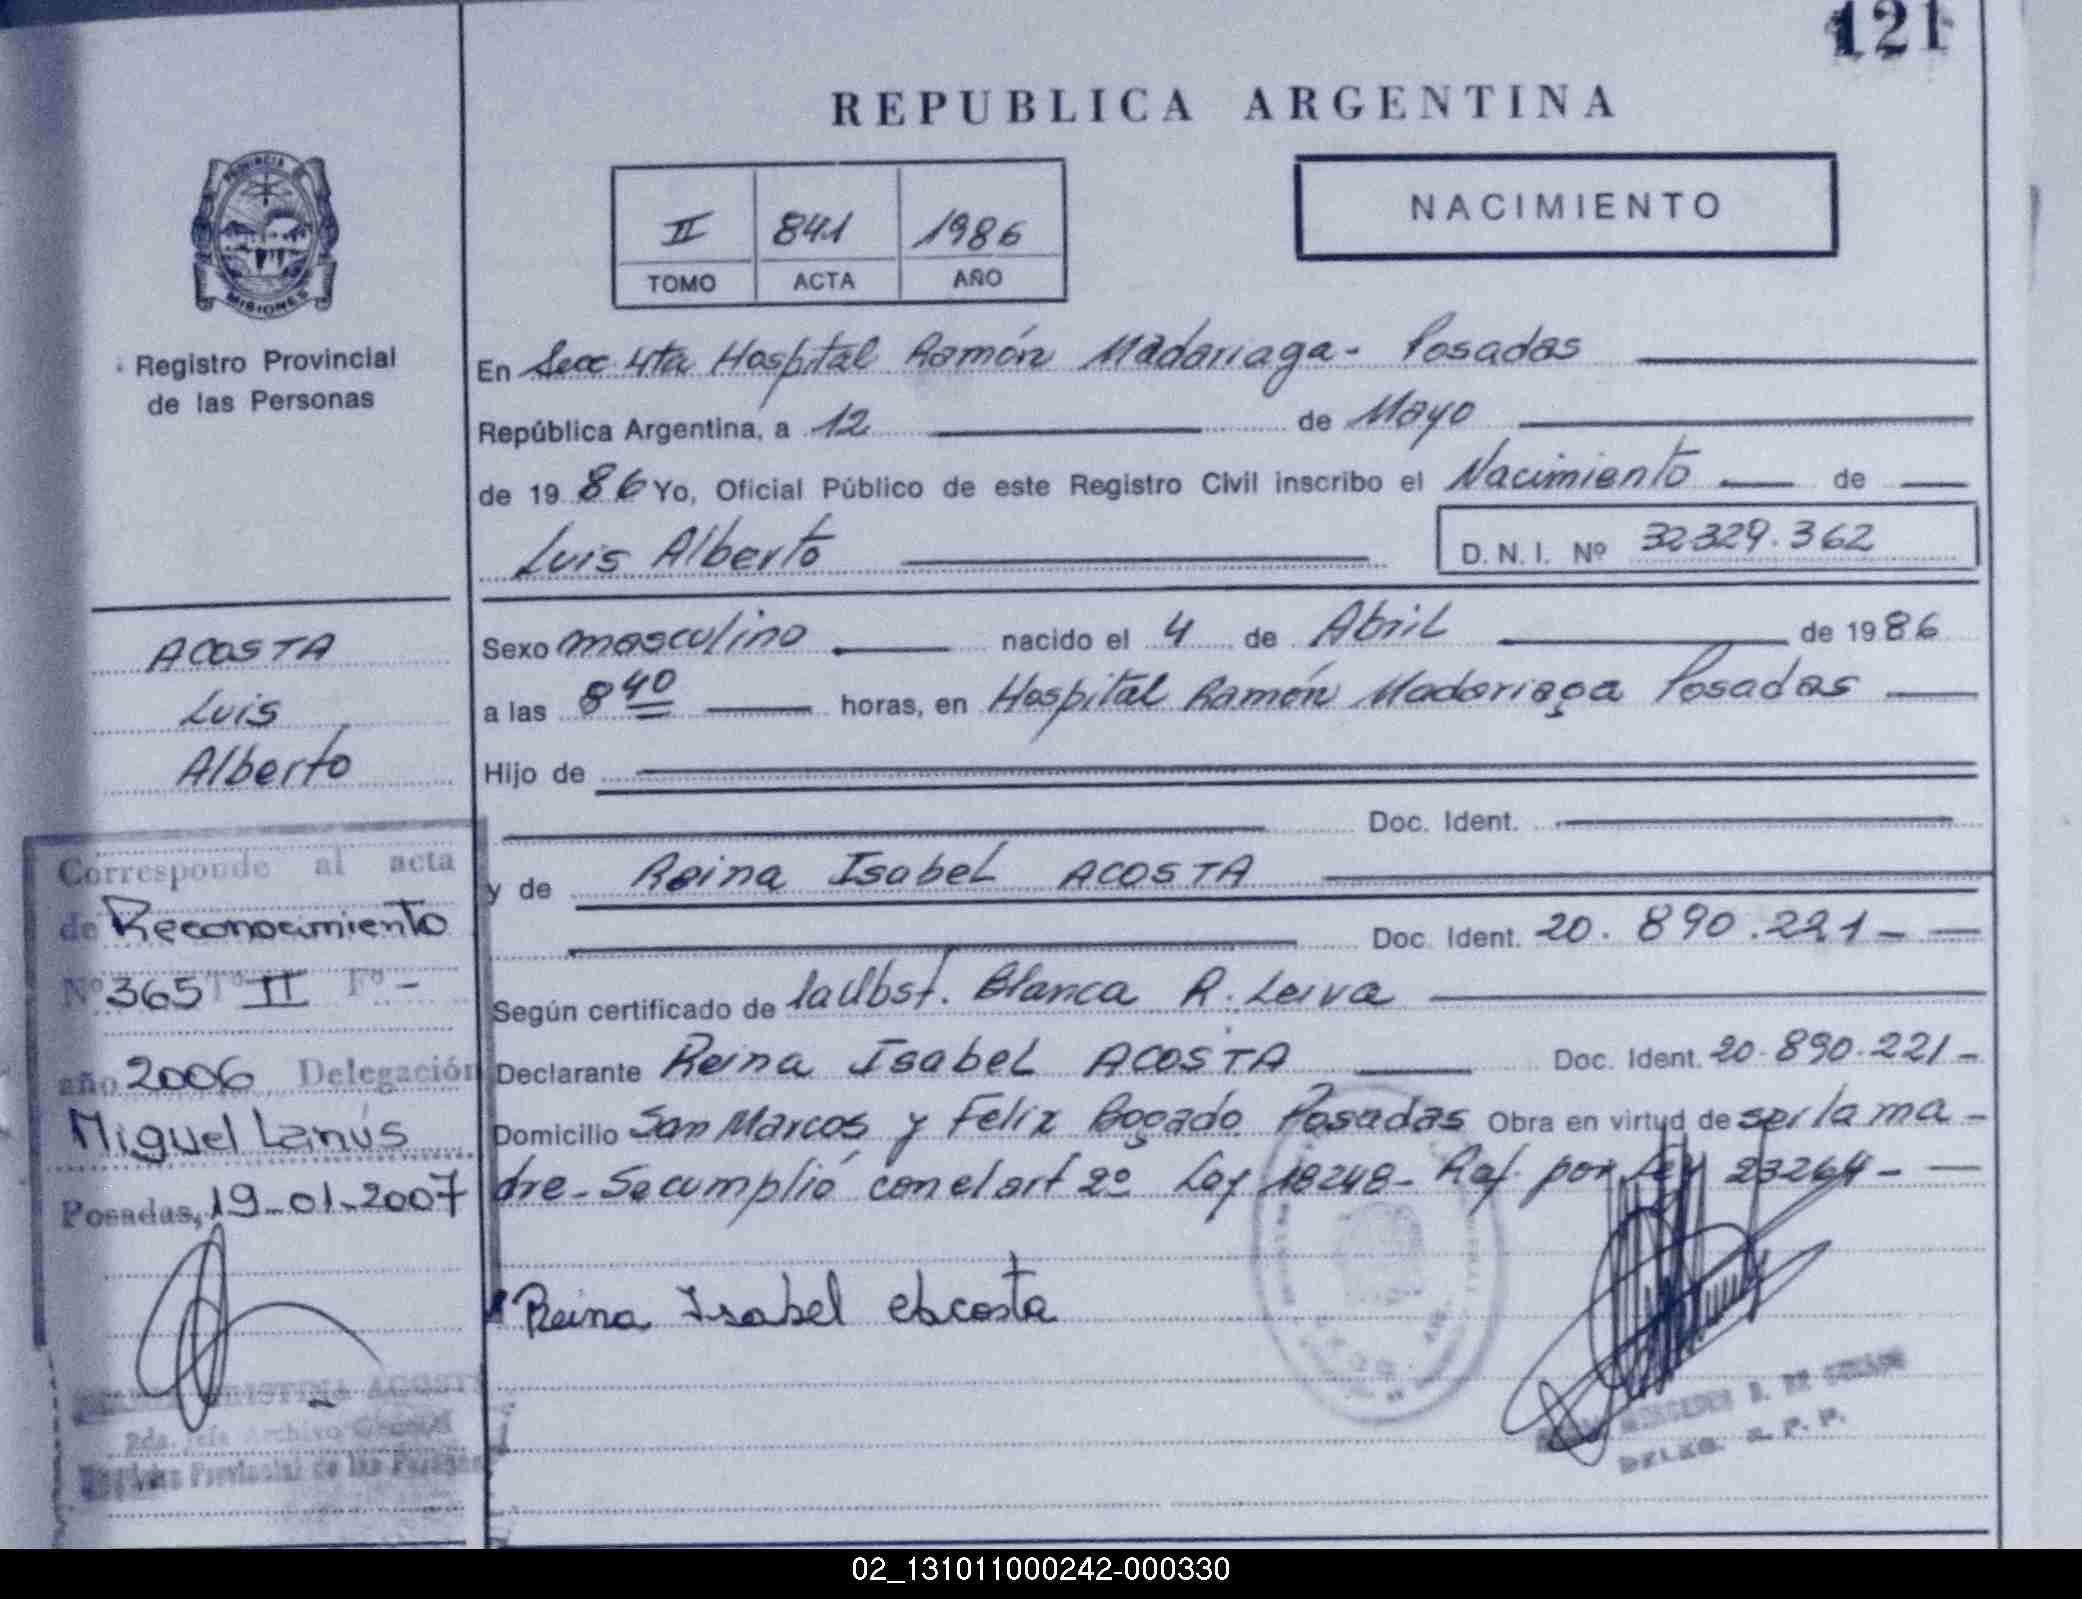 121
REPUBLICA ARGENTINA
NACIMIENTO
II 841 1986
TOMO ACTA AÑO
PROVINCIA DE
MISIONES
Registro Provincial
de las Personas
En Secc 4ta Hospital Ramón Madariaga - Posadas
República Argentina, a 12 de Mayo
de 19 86 Yo, Oficial Público de este Registro Civil inscribo el Nacimiento de
Luis Alberto D. N. I. Nº 32329.362
ACOSTA
Luis
Alberto
Sexo masculino nacido el 4 de Abril de 19 86
a las 8 40 horas, en Hospital Ramón Madariaga Posadas
Hijo de
Doc. Ident.
y de Reina Isabel ACOSTA
Doc. Ident. 20.890.221 -
Según certificado de la Obst. Blanca R. Leiva
Declarante Reina Isabel ACOSTA Doc. Ident. 20.890.221 -
Domicilio San Marcos y Felix Bogado Posadas Obra en virtud de ser la ma -
dre - Se cumplió con el art 2º Ley 18248 - Ref. por Ley 23264 -
Reina Isabel Acosta
Corresponde al acta
de Reconocimiento
Nº 365 Tº II Fº -
año 2006 Delegación
Miguel Lanús
Posadas, 19-01-2007
CRISTINA ACOSTA
Jefe Archivo General
Provincial de las Personas
MERCEDES
DELEG. R. P. P.
02_131011000242-000330